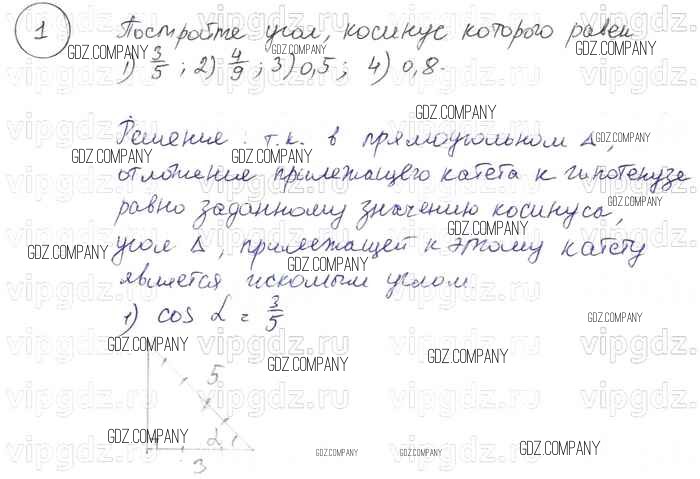 1 Постройте угол, косинус которого равен
1) 3/5 ; 2) 4/9 ; 3) 0,5 ; 4) 0,8.
Решение : т.к. в прямоугольном Δ,
отношение прилежащего катета к гипотенузе
равно заданному значению косинуса,
угол Δ, прилежащей к этому катету
является искомым углом.
1) cos α = 3/5
5
α
3
GDZ.COMPANY
vipgdz.ru